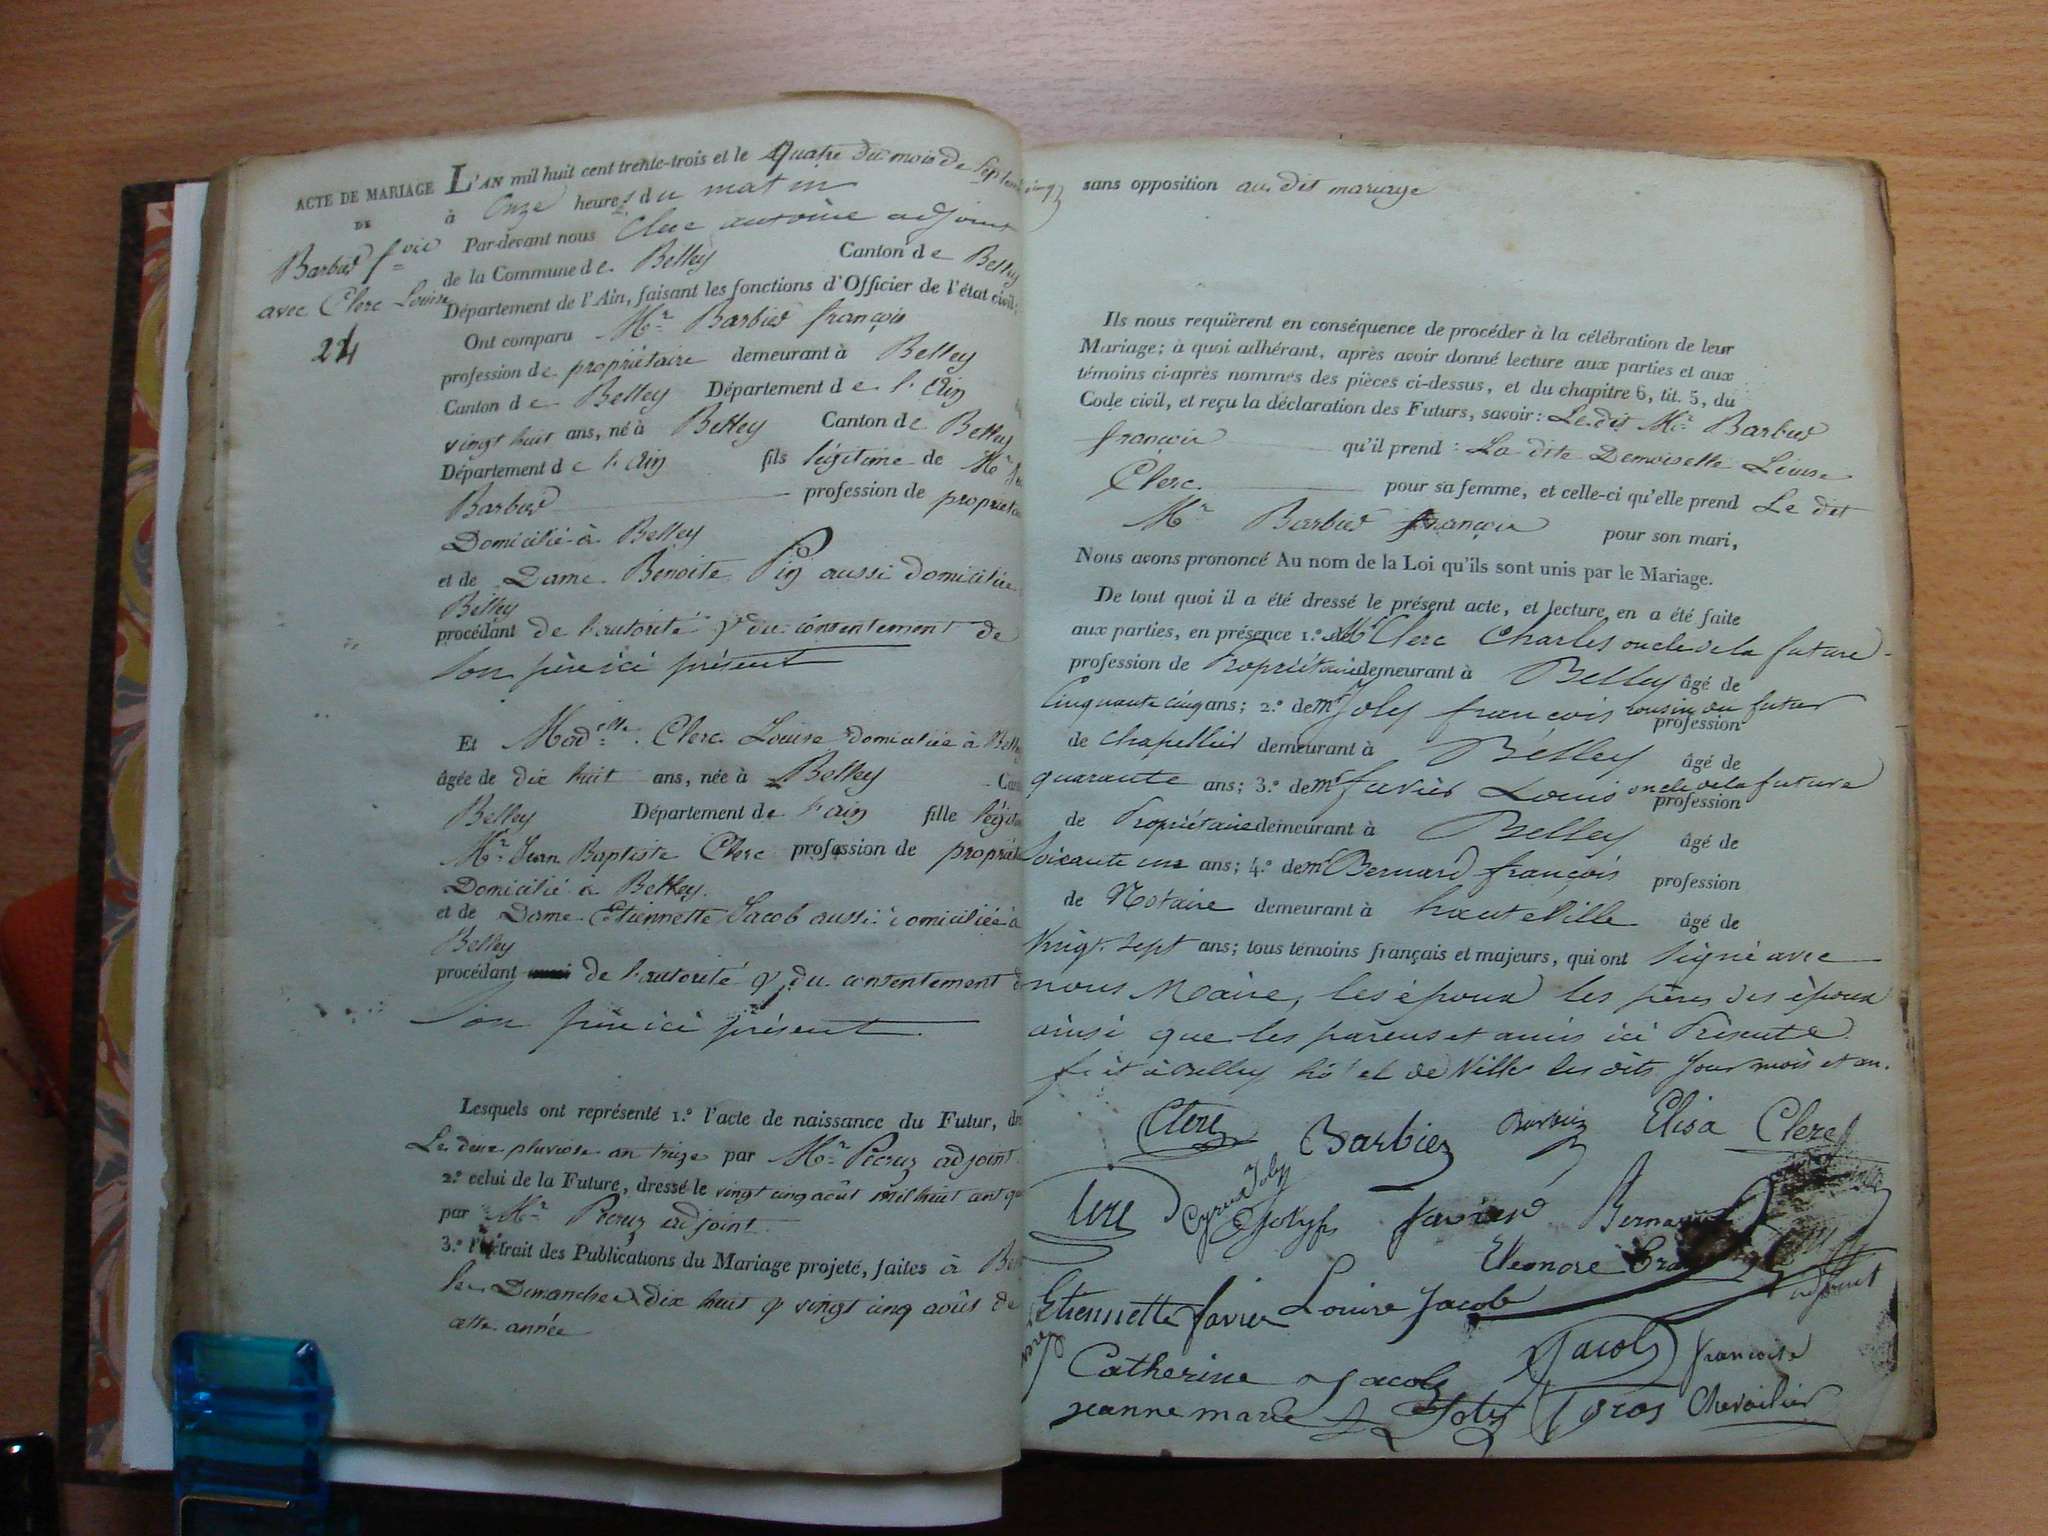 ACTE DE MARIAGE
DE
Barbier f.ois
avec Clerc Louise
24
L'AN mil huit cent trente-trois et le Quatre du mois de Septem
à Onze heures du matin
Par-devant nous Clerc antoine adjoint
de la Commune de Belley Canton de Belley
Département de l'Ain, faisant les fonctions d'Officier de l'état civil:
Ont comparu Mr. Barbier françois
profession de propriétaire demeurant à Belley
Canton de Belley Département de l'Ain
vingt huit ans, né à Belley Canton de Belley
Département de l'Ain fils légitime de Mr
Barbier profession de propriéta
Domicilié à Belley
et de Dame Benoite Pin aussi domiciliée
Belley
procédant de l'autorité & du consentement de
son père ici présent
Et Madelle. Clerc Louise domiciliée à Belley
âgée de dix huit ans, née à Belley Can
Belley Département de l'ain fille légit
Mr. Jean Baptiste Clerc profession de propriét
Domicilié à Belley.
et de Dame Etiennette Jacob aussi domiciliée à
Belley
procédant de l'autorité & du consentement d
son père ici présent.
Lesquels ont représenté 1.º l'acte de naissance du Futur, dre
Le deux pluviose an treize par Mr. Pecruz adjoint
2.º celui de la Future, dressé le vingt cinq août mil huit cent
par Mr. Pecruz adjoint.
3.º l'extrait des Publications du Mariage projeté, faites à Bel
les Dimanches dix huit & vingt cinq août de
cette année
sans opposition au dit mariage
Ils nous requièrent en conséquence de procéder à la célébration de leur
Mariage; à quoi adhérant, après avoir donné lecture aux parties et aux
témoins ci-après nommés des pièces ci-dessus, et du chapitre 6, tit. 5, du
Code civil, et reçu la déclaration des Futurs, savoir: Le dit Mr. Barbier
françois qu'il prend: La dite Demoiselle Louise
Clerc. pour sa femme, et celle-ci qu'elle prend Le dit
Mr. Barbier françois pour son mari,
Nous avons prononcé Au nom de la Loi qu'ils sont unis par le Mariage.
De tout quoi il a été dressé le présent acte, et lecture en a été faite
aux parties, en présence 1.º de Mr Clerc Charles oncle de la future
profession de Propriétaire demeurant à Belley âgé de
Cinquante cinq ans; 2.º de mr Joly francois cousin du futur
profession
de chapellier demeurant à Bélley âgé de
quarante ans; 3.º de mr favier Louis oncle de la future
profession
de Propriétaire demeurant à Belley âgé de
soixante un ans; 4.º de mr Bernard françois profession
de Notaire demeurant à hauteville âgé de
Vingt sept ans; tous témoins français et majeurs, qui ont signé avec
nous Maire, les époux les pères des époux
ainsi que les parens et amis ici Présents
fait à Belley hôtel de Ville les dits Jour mois et an.
Clerc Barbier Barbier Elisa Clerc
Clerc Cyrus Joly Joly fs favier Bernard
Eleonore
adjoint
Etiennette favier Louise Jacob
Catherine Jacob Jacob francoise
jeanne marie Joly Gros Chevailier